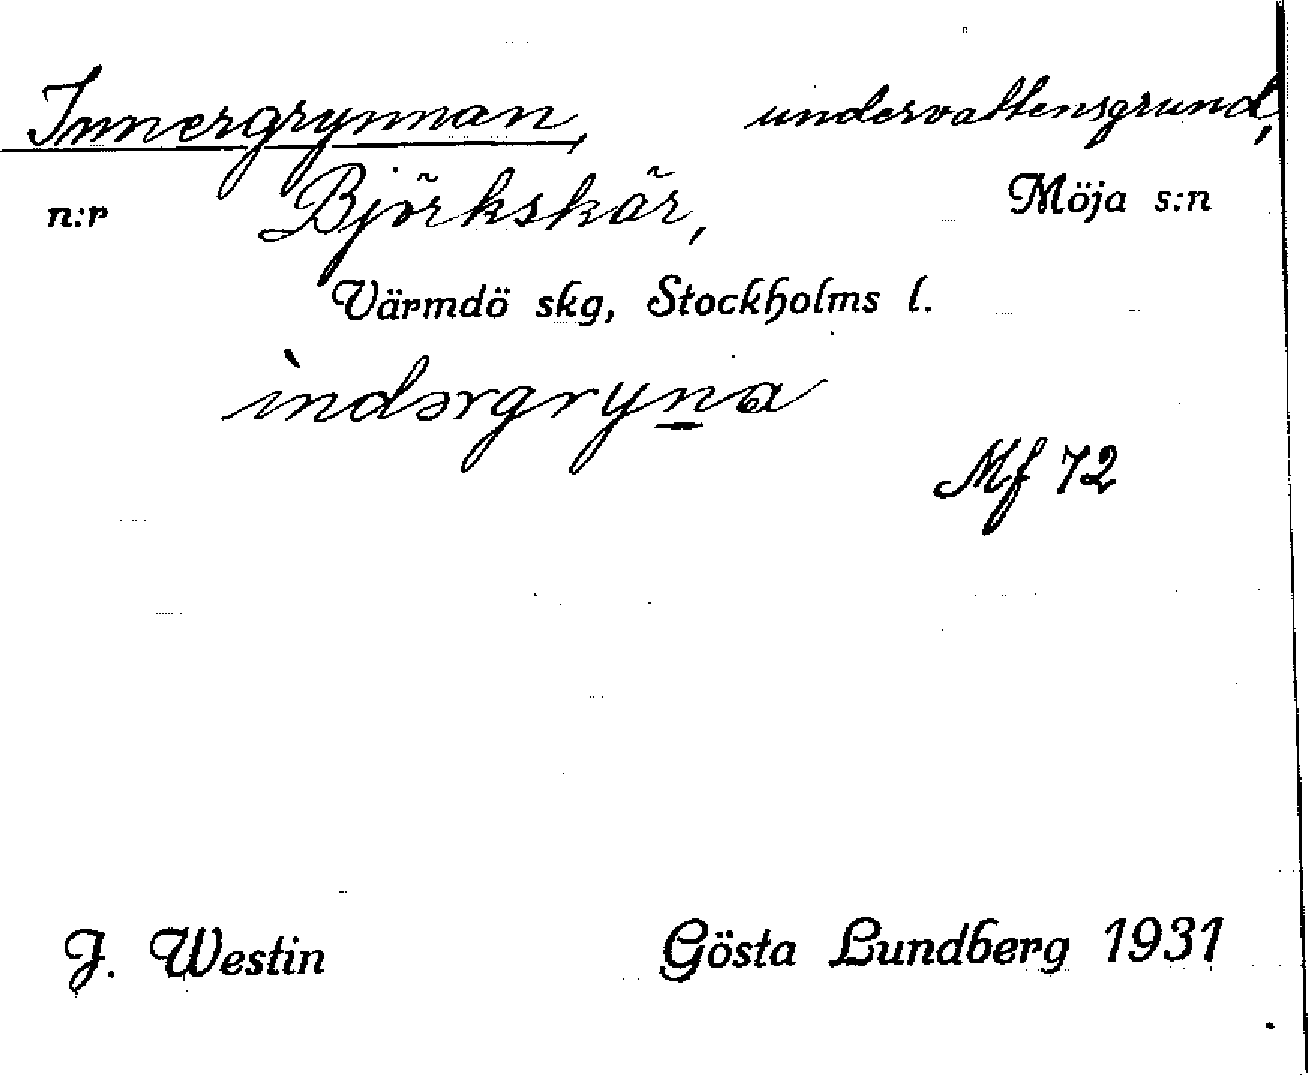 Innergrynnan, undervattensgrund,
n:r Björkskär, Möja s:n
Värmdö skg, Stockholms l.
ìndərgryn̲a
Mf 72
J. Westin Gösta Lundberg 1931